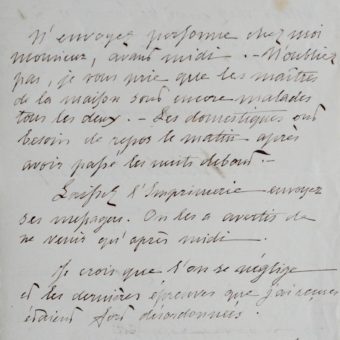 N'envoyez personne chez moi
monsieur, avant midi. – N'oubliez
pas, je vous prie que les maîtres
de la maison sont encore malades
tous les deux. – Les domestiques ont
besoin de repos le matin après
avoir passé les nuits debout. –
Laissez l'Imprimerie envoyer
ses messages. On les a avertis de
ne venir qu'après midi.
Je crois que l'on se néglige
et les dernières épreuves que j'ai reçues
étaient fort désordonnées.